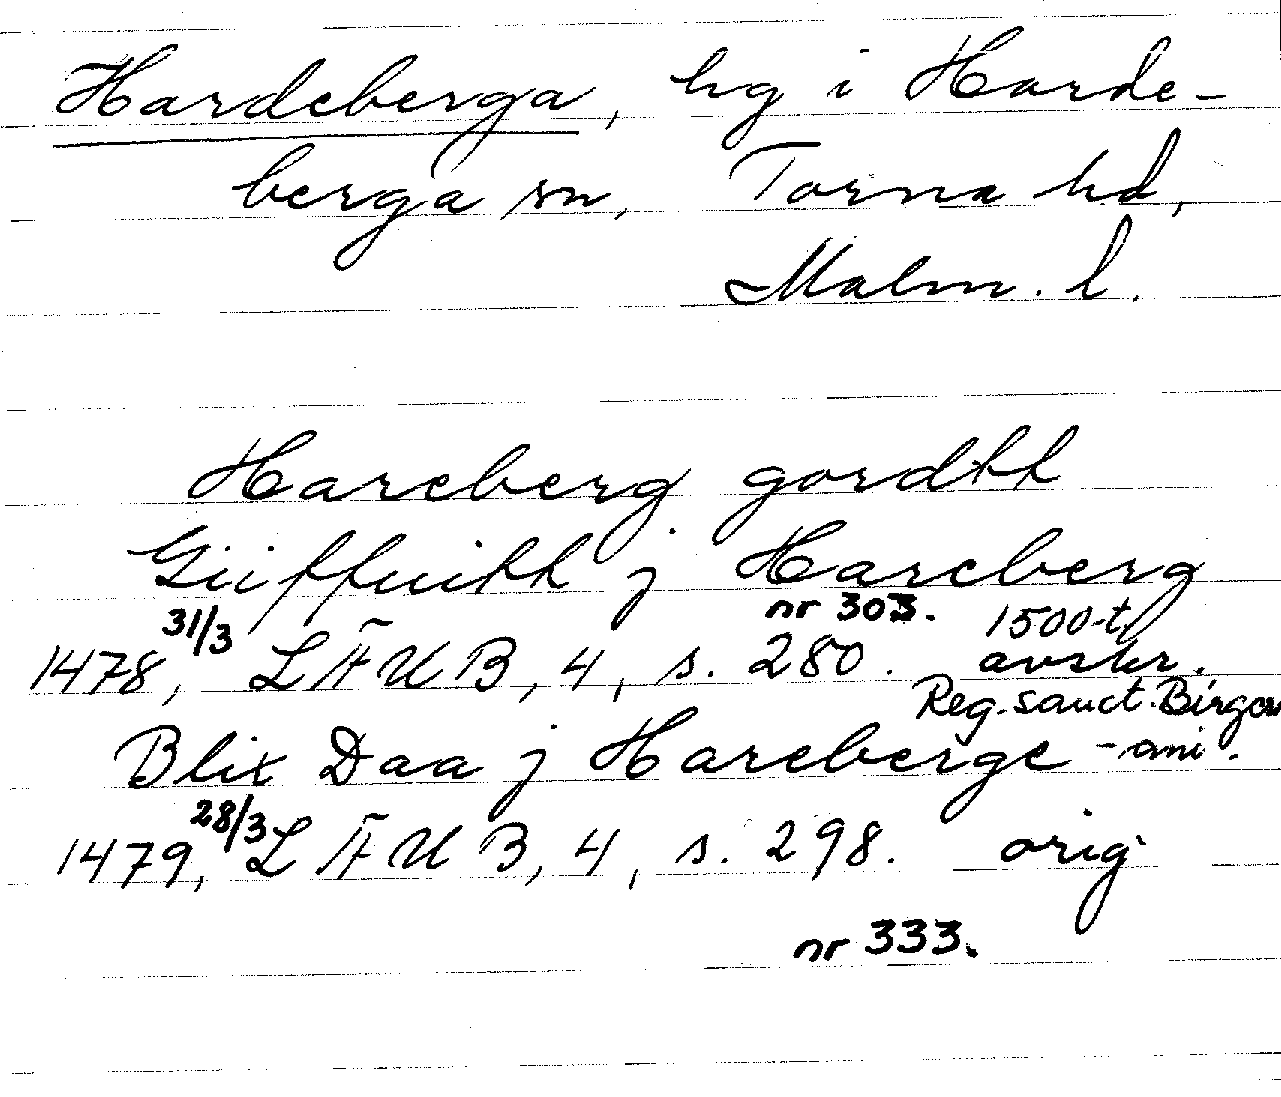 Hardeberga, hg i Harde-
berga sn, Torna hd,
Malm. l.
Hareberg gordtt
Giiffuitt j Hareberg
nr 303. 1500-t.
1478, 31/3 LÄUB, 4, s. 280. avskr.
Reg. sanct. Birger
Blix Daa j Hareberge -ani.
1479, 28/3 LÄUB, 4, s. 298. orig
nr 333.